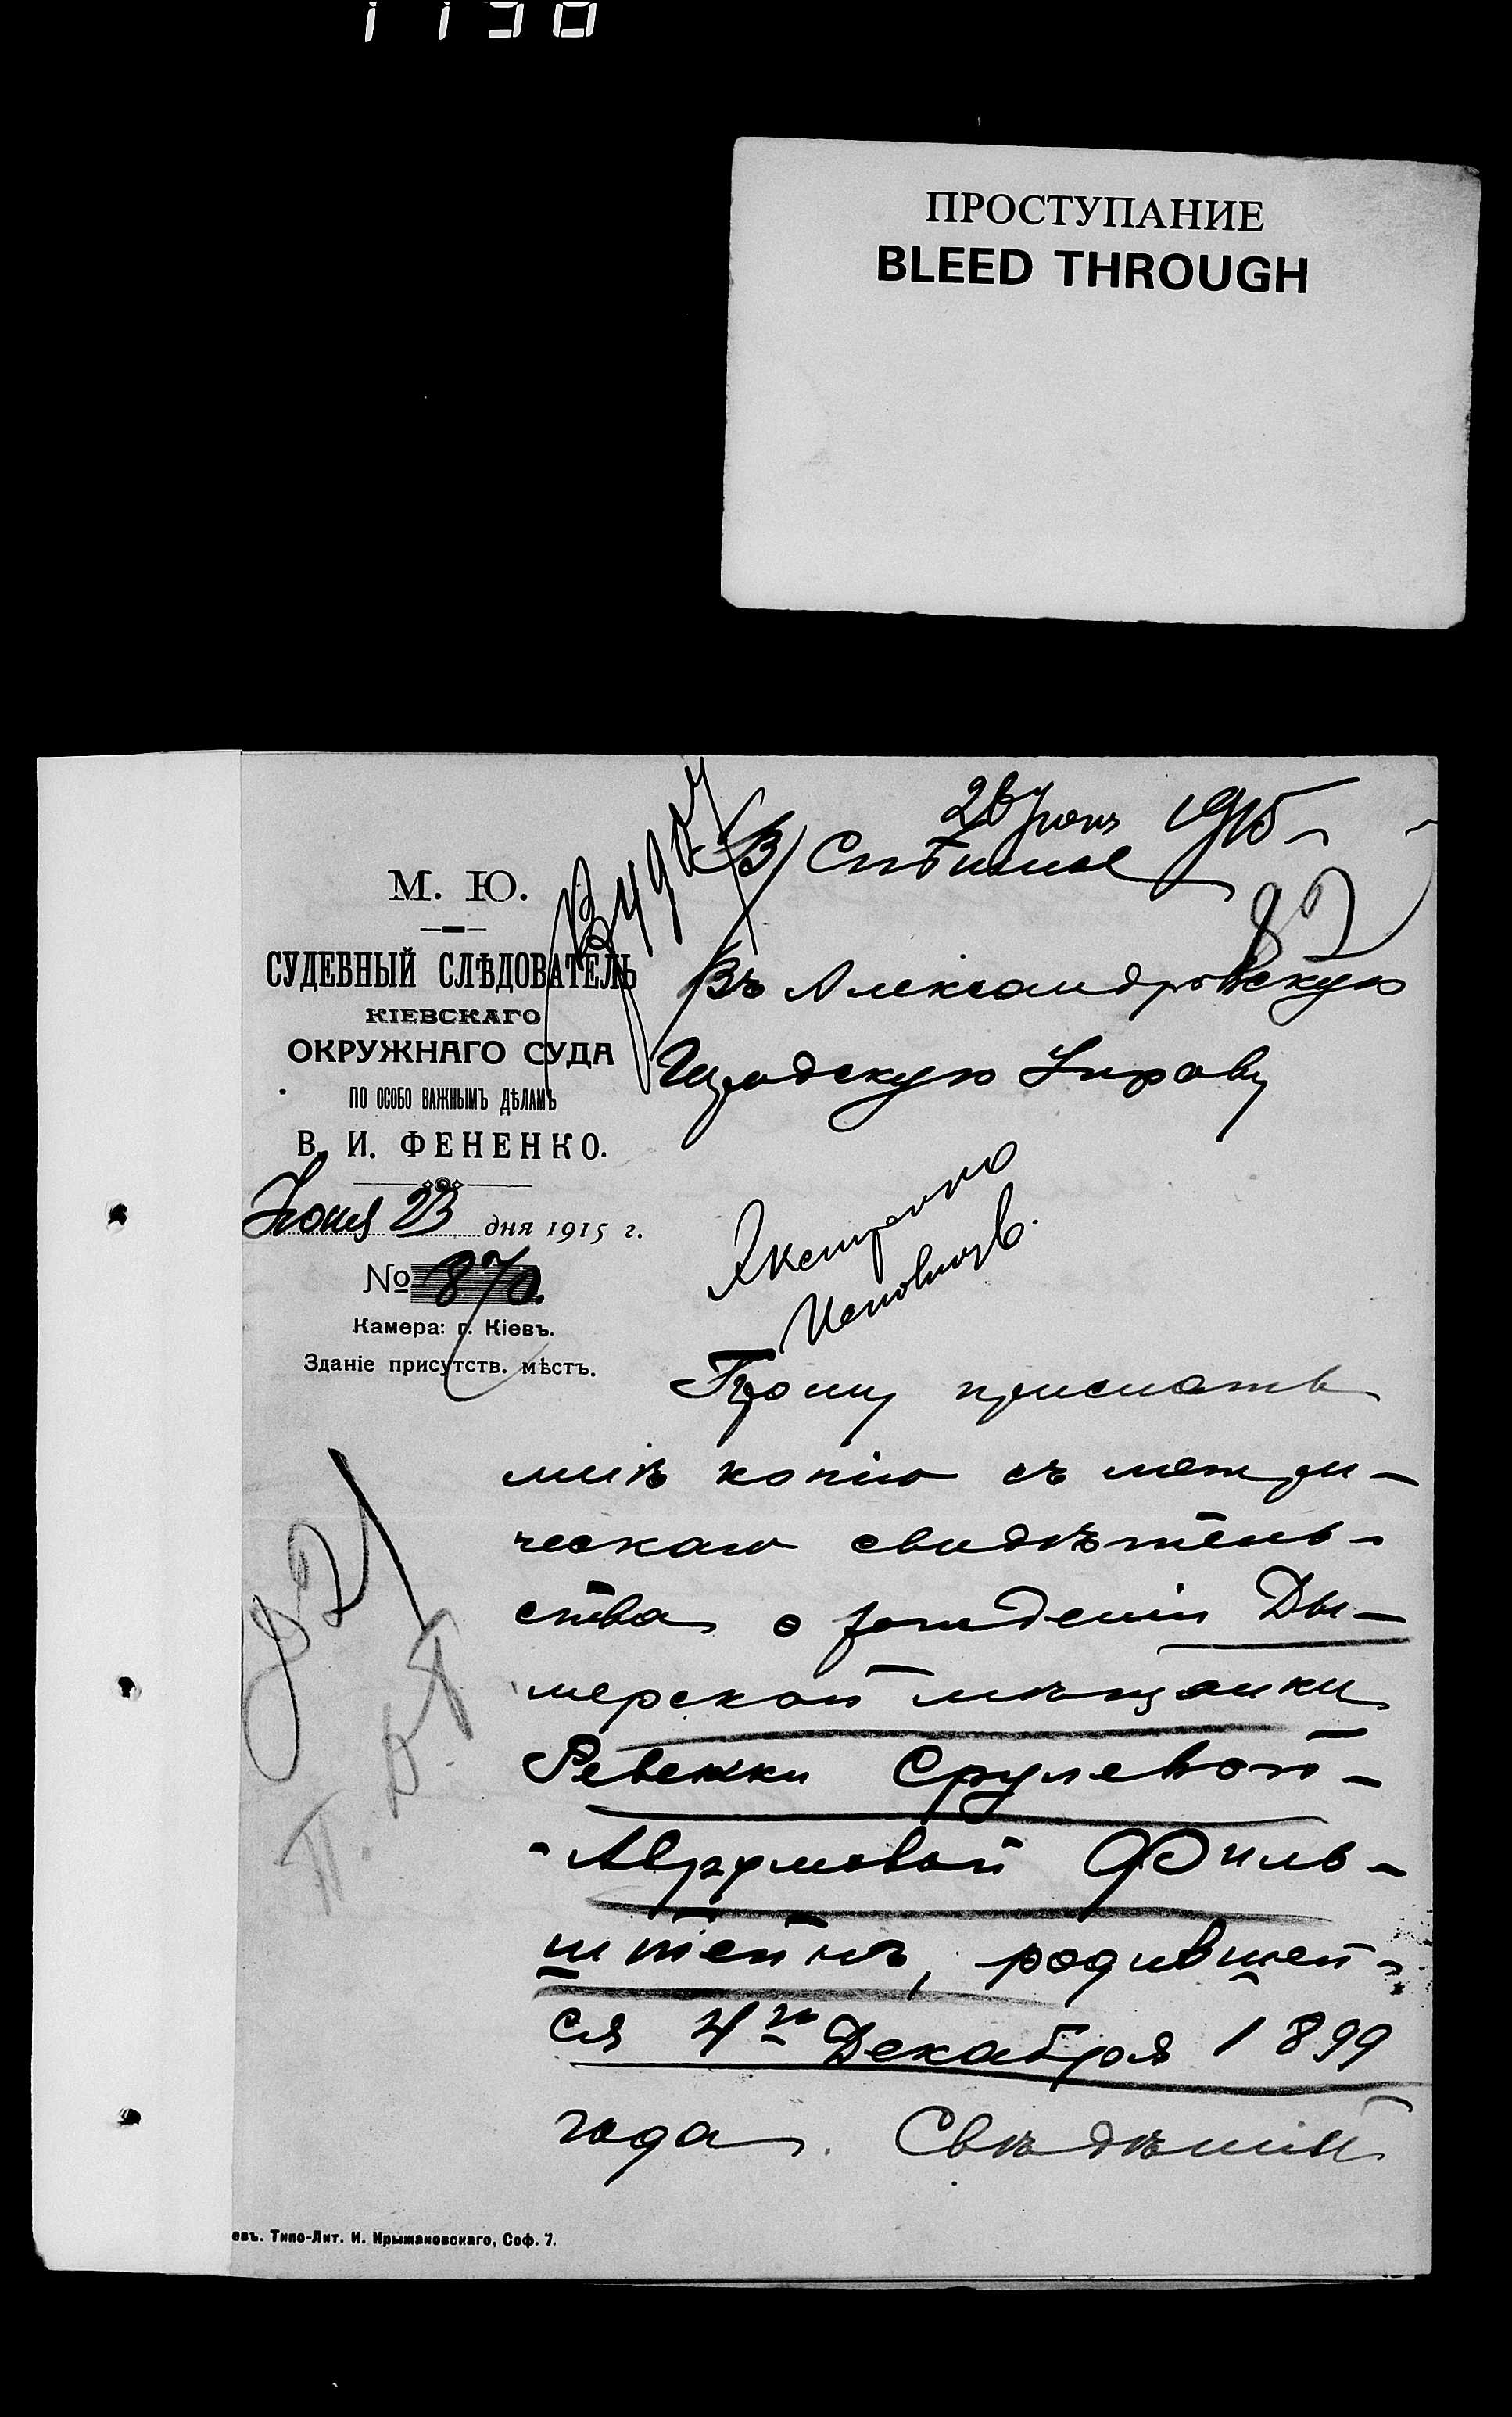 ПРОСТУПАНИЕ
BLEED THROUGH
26 Июня 1915
82
М. Ю.
СУДЕБНЫЙ СЛѢДОВАТЕЛЬ
КІЕВСКАГО
ОКРУЖНАГО СУДА
ПО ОСОБО ВАЖНЫМЪ ДѢЛАМЪ
В. И. ФЕНЕНКО.
Июня 23 дня 1915 г.
№ 870.
Камера: г. Кіевъ.
Зданіе присутств. мѣстъ.
Въ Александровскую
Городскую Управу
Экстренно
Прошу прислать
мнѣ копію съ метри-
ческаго свидѣтель-
ства о рожденіи Ды-
мерской мѣщанки
Ревекки Срулевой-
-Аврумовой Филь-
штейнъ, родившей-
ся 4го Декабря 1899
года. Свѣдѣнія
евъ. Типо-Лит. И. Крыжановскаго, Соф. 7.